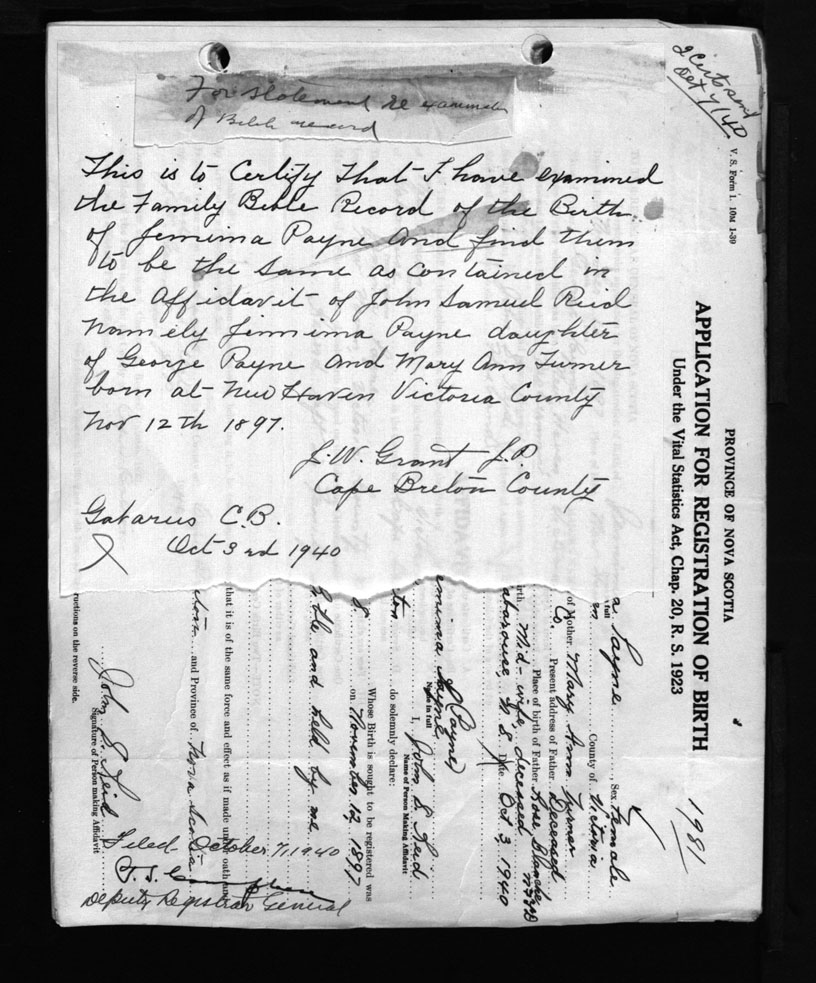 For statement re examination
of Bible record
This is to Certify that I have examined
the Family Bible Record of the Birth
of Jemima Payne and find them
to be the same as contained in
the Affidavit of John Samuel Reid
namely Jemima Payne daughter
of George Payne and Mary Ann Turner
born at New Haven Victoria County
Nov 12th 1897.
J. W. Grant J.P.
Cape Breton County
Gabarus C.B.
Oct 3rd 1940
2 Certs and
Oct 7/40
V. S. Form 1. 10M 1-39
PROVINCE OF NOVA SCOTIA
APPLICATION FOR REGISTRATION OF BIRTH
Under the Vital Statistics Act, Chap. 20, R. S. 1923
1981
a Payne, Sex Female
full
County of Victoria
of Mother Mary Ann Turner
Co. Present address of Father Deceased
Place of birth of Father Rose Blanche Nfld
irth Mid-wife, deceased
abarouse, N S. Date Oct 3, 1940
(Payne)
emima Payne
Name in full
I, John S Reid
Name of Person Making Affidavit
ton do solemnly declare:
Whose Birth is sought to be registered was
8 on November 12, 1897
ible and held by me
that it is of the same force and effect as if made under oath and
eton and Province of Nova Scotia
John S. Reid
Signature of Person making Affidavit
ructions on the reverse side.
Filed October 7, 1940
Deputy Registrar General